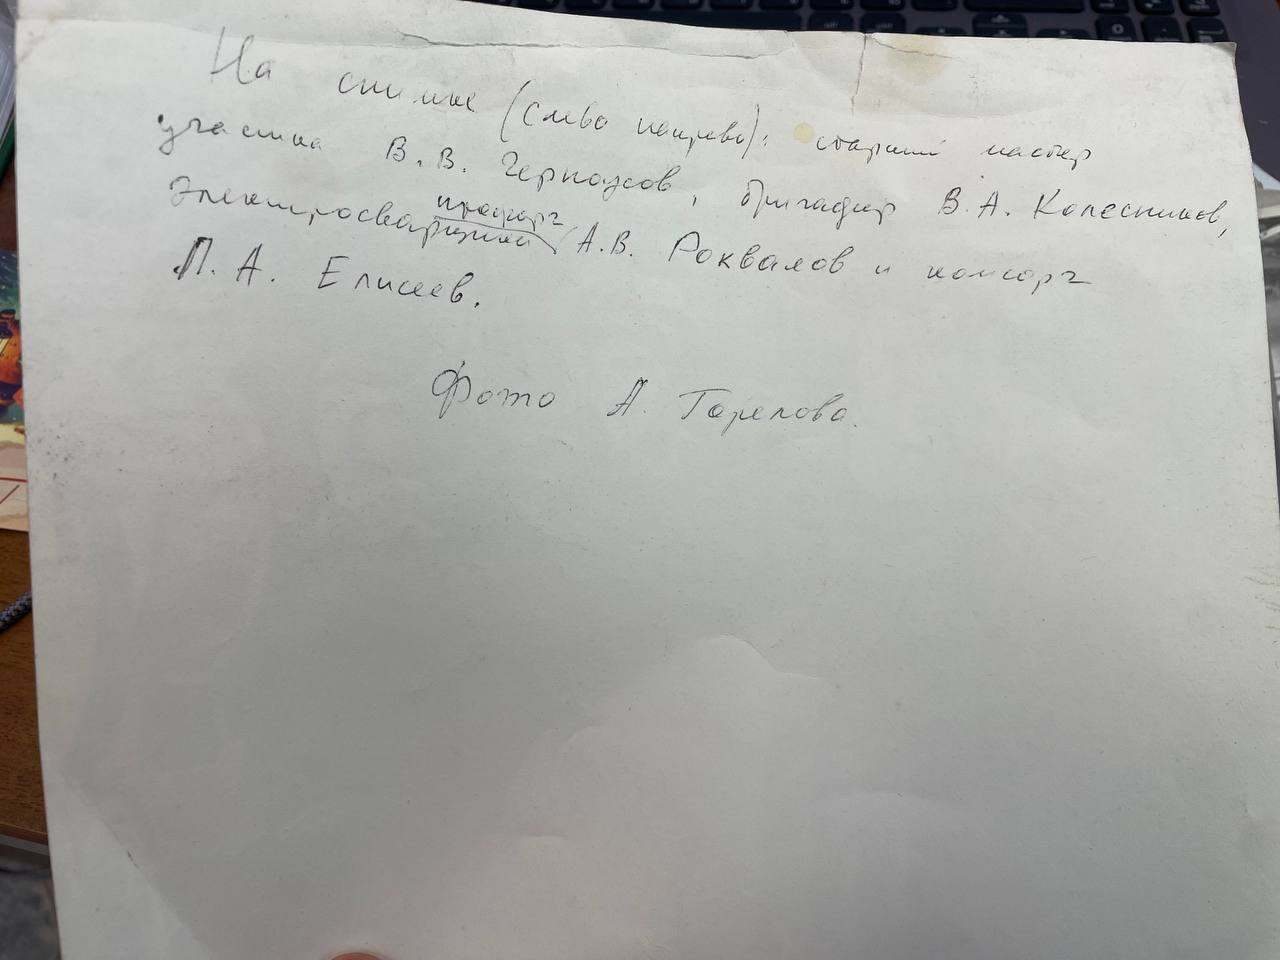 На снимке (слева направо): старший мастер
участка В.В. Черноусов, бригадир В.А. Колесников,
профорг
электросварщики А.В. Роквалов и комсорг
П.А. Елисеев.
Фото А. Горелова.